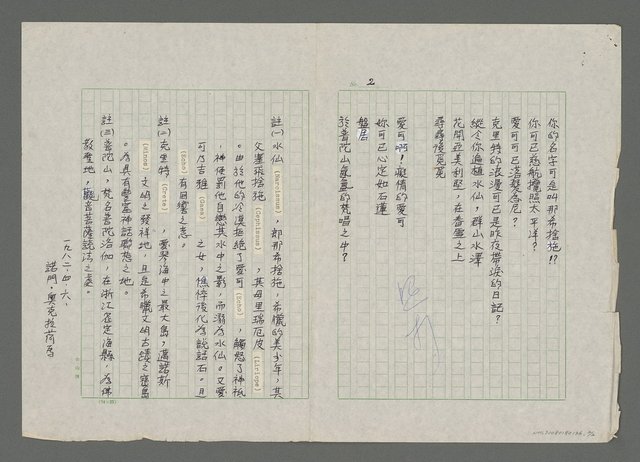 2
你的名字可是叫那希捨拖!?
你可已慈航攬照太平洋？
愛可可已落髮為尼？
克里特的浪漫可已是昨夜帶淚的日記？
縱令你遍植水仙，群山水澤
花開亞美利堅，在香塵之上
尋尋復覓覓
愛可啊！癡情的愛可
妳可已心定如石蓮
盤居
於普陀山的梵唱之中？
註㈠水仙(Narcissus)，即那希捨拖，希臘的美少年，其
父塞飛捨拖(Cephissus)，其母里瑞厄皮(Liriope)
。由於他的冷漠拒絕了愛可(Echo)，觸怒了神祇
，神使罰他自戀其水中之影，而溺為水仙。又愛
可乃吉雅(Gaea)之女，憔悴後化為說話石。且
(Echo)有回響之意。
註㈡克里特(Crete)，愛琴海中之最大島，邁諾斯
(Minos)文明之發祥地，且是希臘文明古蹟之寶島
。為具有豐富神話聯想之地。
註㈢普陀山，梵名普陀洛伽，在浙江省定海縣，為佛
教聖地，觀音菩薩說法之處。
一九八二.四.六.
諾門，奧克拉荷馬